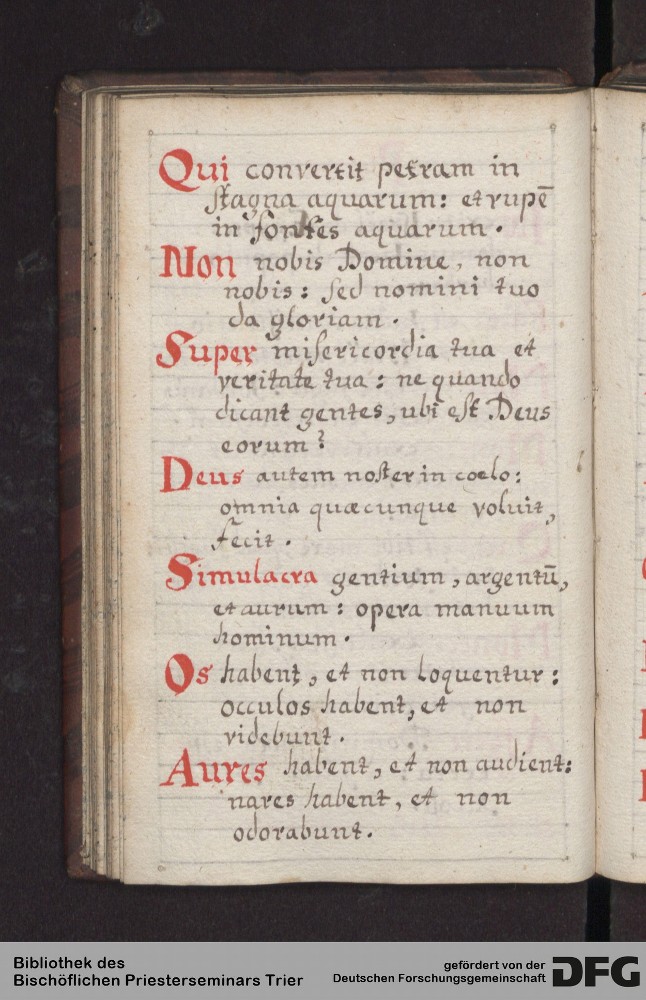 Qui convertit petram in
stagna aquarum: et rupē
in fontes aquarum.
Non nobis Domine, non
nobis: sed nomini tuo
da gloriam.
Super misericordia tua et
veritate tua: ne quando
dicant gentes, ubi est Deus
eorum?
Deus autem noster in coelo:
omnia quæcunque voluit,
fecit.
Simulacra gentium, argentū,
et aurum: opera manuum
hominum.
Os habent, et non loquentur:
occulos habent, et non
videbunt.
Aures habent, et non audient:
nares habent, et non
odorabunt.
Bibliothek des
Bischöflichen Priesterseminars Trier
gefördert von der
Deutschen Forschungsgemeinschaft
DFG